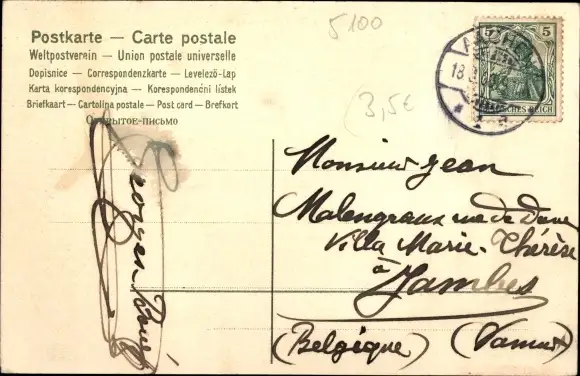 Postkarte — Carte postale
Weltpostverein — Union postale universelle
Dopisnice — Correspondenzkarte — Levelező-Lap
Karta korespondencyjna — Korespondenční lístek
Briefkaart — Cartolina postale — Post card — Brefkort
Открытое-письмо
5100
3,5€
5 5
DEUTSCHES REICH
AACHEN
18
1 a
Monsieur Jean
Malengraux rue de Dave
Villa Marie-Thérèse
à
Jambes
(Belgique) (Namur)